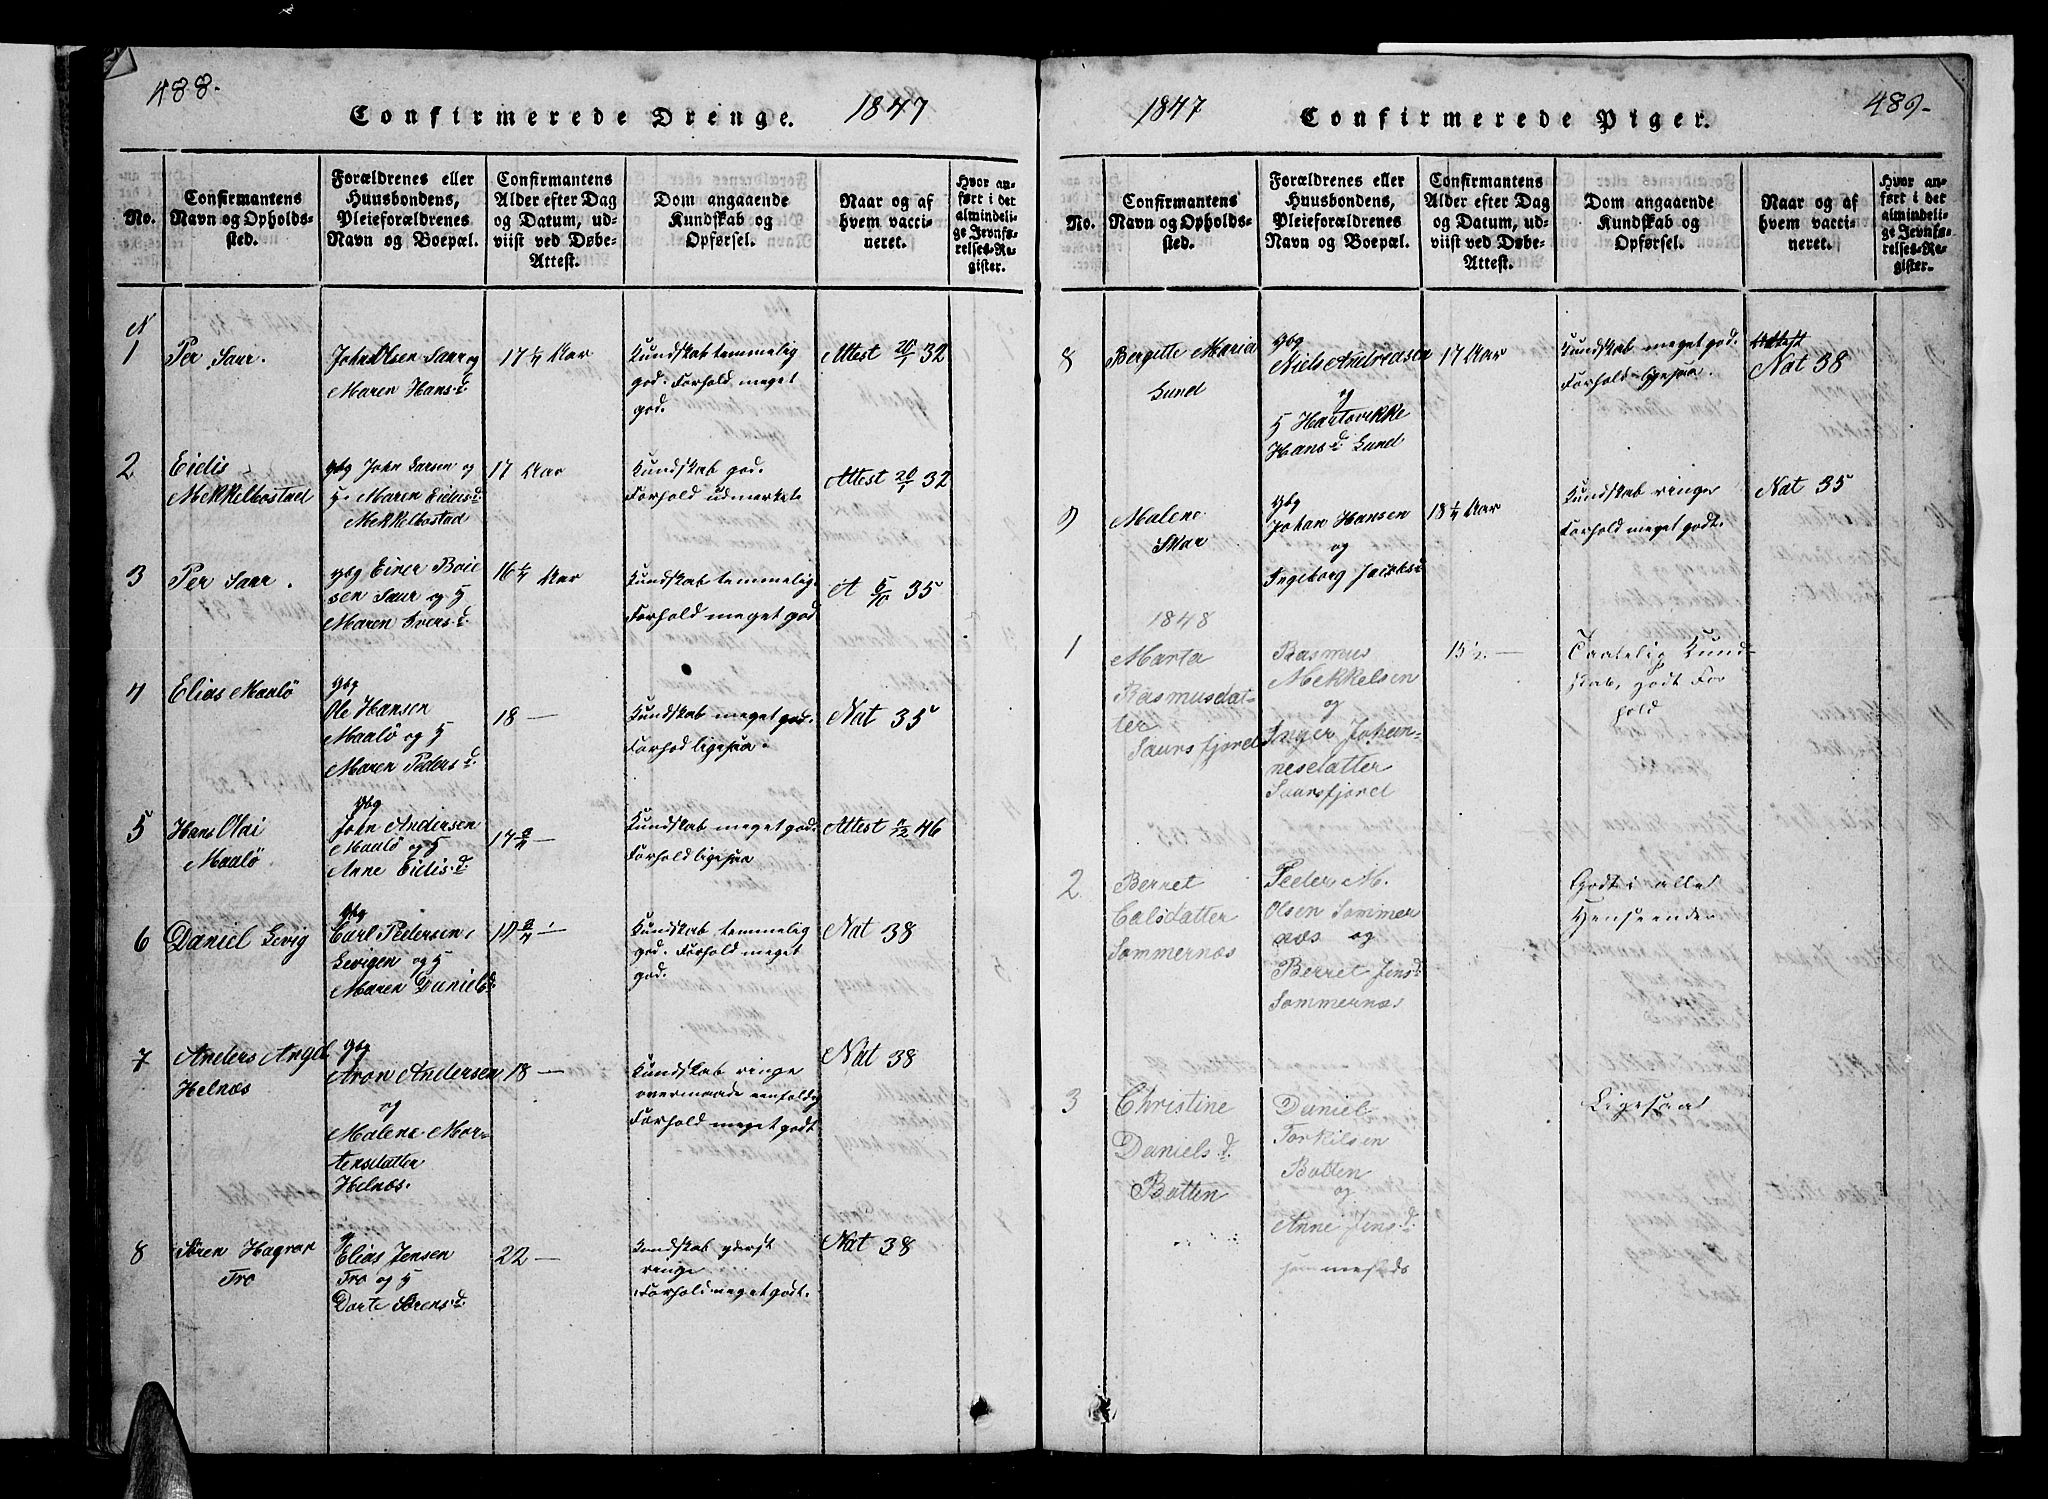 488.
Confirmerede Drenge. 1847
No.
Confirmantens
Navn og Opholds-
sted.
Forældrenes eller
Huusbondens,
Pleieforældrenes
Navn og Boepæl.
Confirmantens
Alder efter Dag
og Datum, ud-
viist ved Døbe-
Attest.
Dom angaaende
Kundskab og
Opførsel.
Naar og af
hvem vacci-
neret.
Hvor an-
ført i det
almindeli-
ge Jevnfø-
relses-Re-
gister.
1
Per Saur.
John Olsen Saur og
Maren Hans d.
17 1/4 Aar
Kundskab temmelig
god. Forhold meget
god.
Attest 32
2
Eidis
Mekkelbostad
gbg John Larsen og
h. Maren Eidis d.
Mekkelbostad
17 Aar
Kundskab god.
Forhold udmerket
Attest 32
3
Per Saur.
gbg Einer Boie
sen Saur og h
Maren Ivers d.
16 1/4 Aar
Kundskab temmelig.
Forhold meget god
A 35
4
Elias Maalö
gbg
Ole Hansen
Maalö og h
Maren Peders d.
18 —
Kundskab meget god.
Forhod ligesaa.
Nat 35
5
Hans Olai
Maalö
gbg
John Andersen
Maalö og h
Anne Eidis d.
17 —
Kundskab meget god.
Forhold ligesaa
Attest 46
6
Daniel Levig
gbg
Carl Pedersen
Levigen og h
Maren Daniels d.
Kundskab temmelig
god. Forhold meget
god.
Nat 38
7
Anders Angel
Helnæs
gbg
Aron Andersen
og
Malene Mor-
tensdatter
Helnæs.
18 —
Kundskab ringe
overmaade eenfoldig
Forhold meget godt
Nat 38
8
Sören Hagran
Tro
g
Elias Jensen
Tro og h
Dorte Sörens d.
22 —
Kundskab yderst
ringe
Forhold meget godt.
Nat 38
1847 Confirmerede Piger. 489-
No.
Confirmantens
Navn og Opholds-
sted.
Forældrenes eller
Huusbondens,
Pleieforældrenes
Navn og Boepæl.
Confirmantens
Alder efter Dag
og Datum, ud-
viist ved Døbe-
Attest.
Dom angaaende
Kundskab og
Opførsel.
Naar og af
hvem vacci-
neret.
Hvor an-
ført i det
almindeli-
ge Jevnfø-
relses-Re-
gister.
8
Bergitte Maria
Lund
gbg
Niels Andreasen
og
h Hartvikke
Hans d. Lund
17 Aar
Kundskab meget god.
Forhold ligesaa.
Nat 38
9
Malene
Skar
gbg
Johan Hansen
og
Ingeborg Jacobs d
18 1/4 Aar
Kundskab ringe
Forhold meget godt.
Nat 35
1848
1
Marta
Rasmusdat-
ter
Saursfjord
Rasmus
Mekkelsen
og
Inger Johan-
nesdatter
Saursfjord
15 1/2 —
Taalelig Kund-
skab, godt For
hold
2
Berret
Calsdatter
Sommernæs
Peder M.
Olsen Sommer
næs og
Berret Jens d
Sommernæs
Godt i alle
Henseender
3
Christine
Daniels d.
Botten
Daniel
Torkilsen
Botten
og
Anne Jens d.
Ligesaa